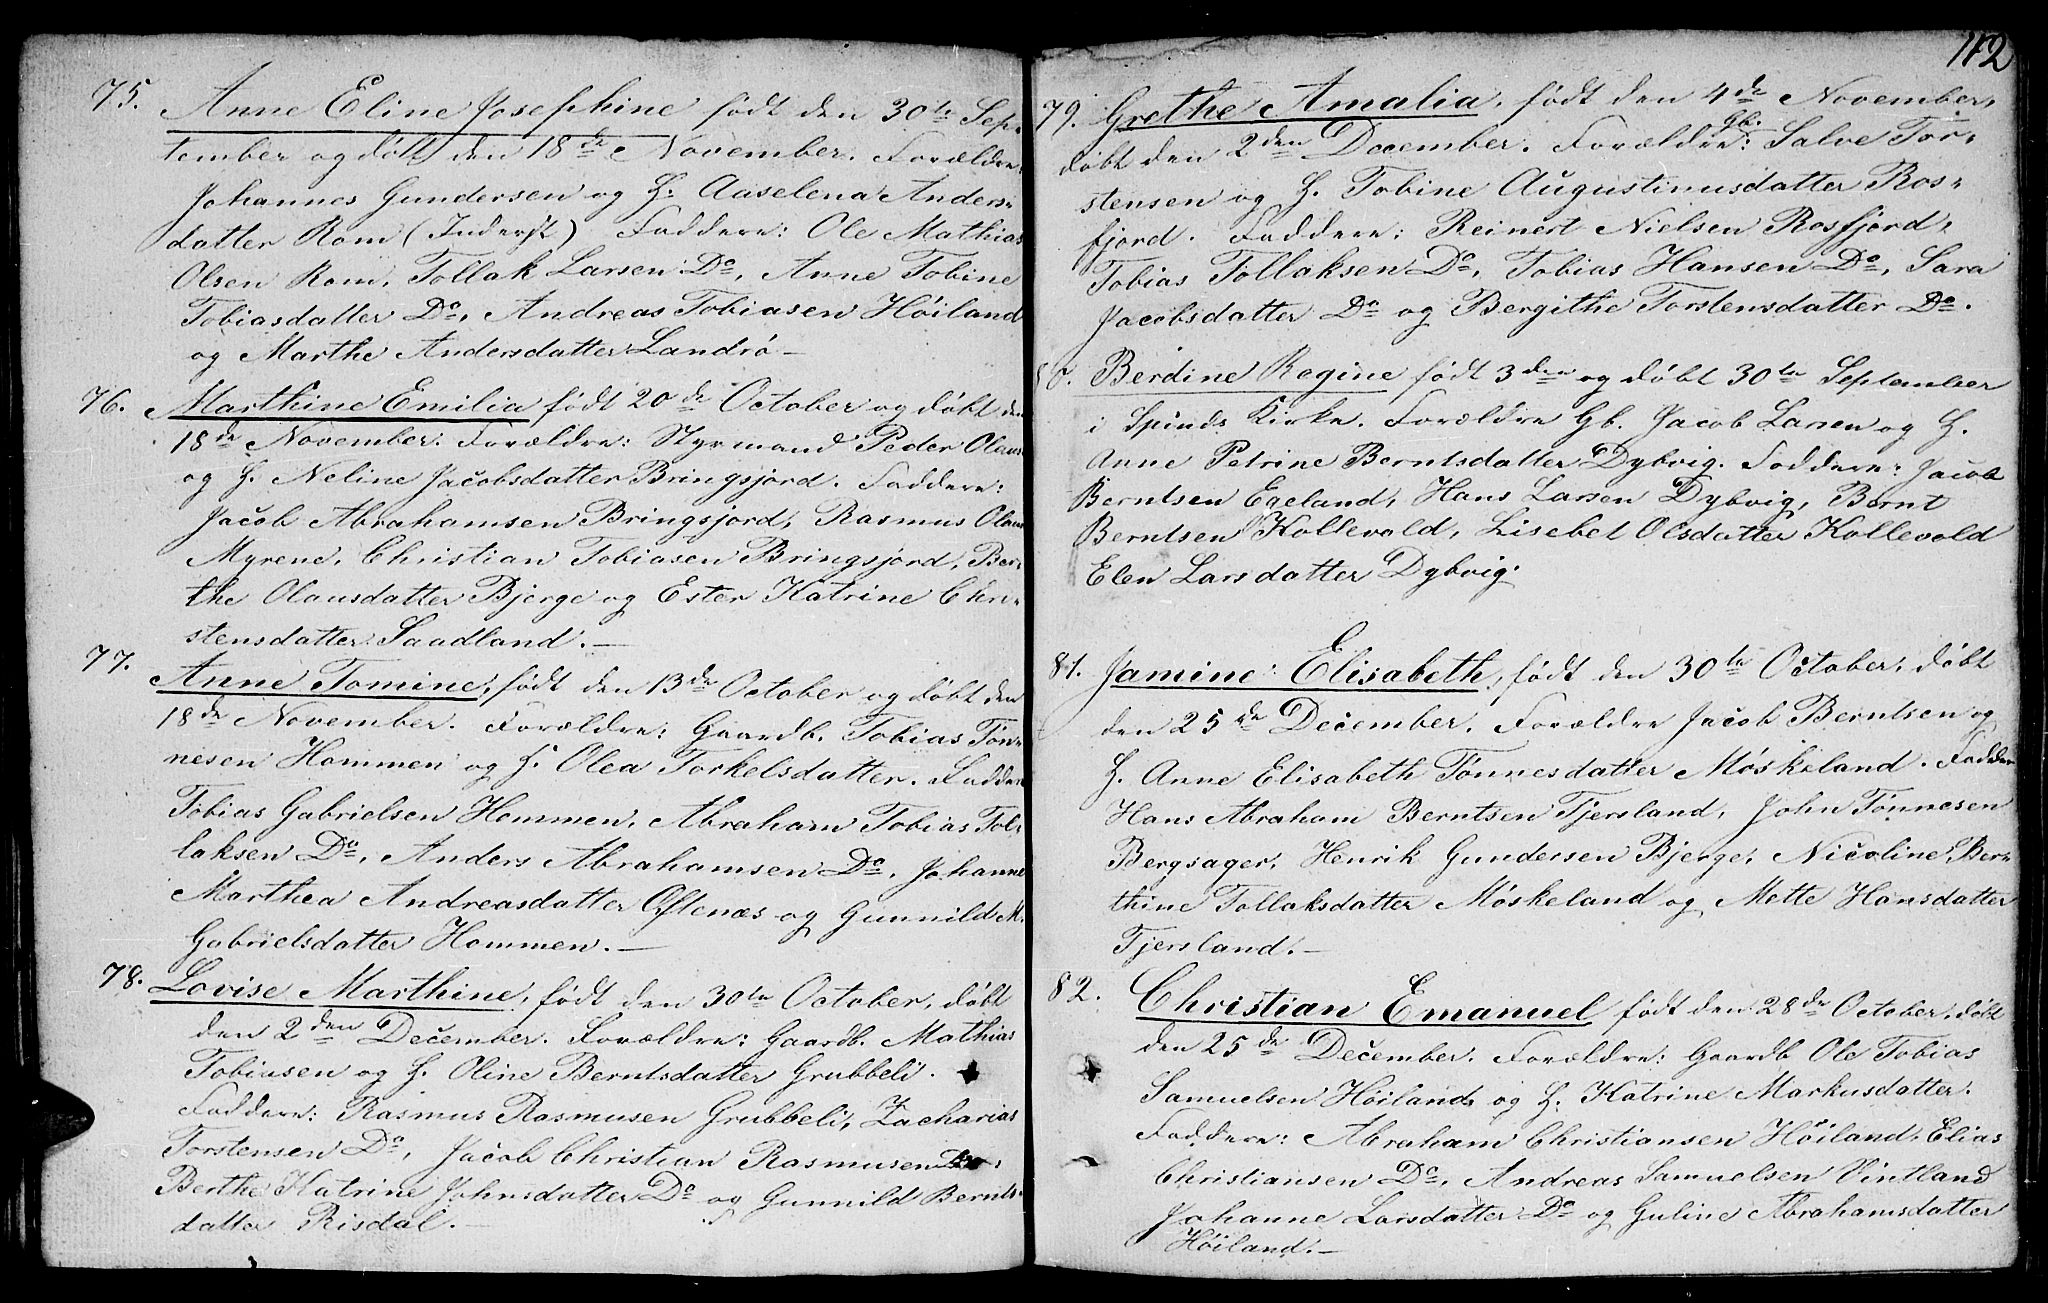 75. Anne Eline Josephine født den 30te Sep-
tember og døbt den 18de November. Forældre:
Johannes Gundersen og H. Aaselena Anders-
datter Rom (Inderst) Faddere: Ole Mathias
Olsen Rom, Tollak Larsen Do, Anne Tobine
Tobiasdatter Do, Andreas Tobiasen Høiland
og Marthe Andersdatter Landrø —
76. Marthine Emilia født 20de October og døbt den
18de November. Forældre: Styrmand Peder Olaus
og H. Neline Jacobsdatter Bringsjord. Faddere:
Jacob Abrahamsen Bringsjord, Rasmus Olaus
Myrene, Christian Tobiasen Bringsjord, Ber-
the Olausdatter Bjerge og Ester Katrine Chri-
stensdatter Saadland. —
77. Anne Tomine, født den 13de October og døbt den
18de November. Forældre: Gaardb. Tobias Tøn-
nesen Hommen og H. Olea Torkelsdatter. Faddere
Tobias Gabrielsen Hommen, Abraham Tobias Tol-
laksen Do, Anders Abrahamsen Do, Johanne
Marthea Andreasdatter Oftenæs og Gunnild M.
Gabrielsdatter Hommen. —
78. Lovise Marthine, født den 30te October, døbt
den 2den December. Forældre: Gaardb. Mathias
Tobiasen og H. Oline Berntsdatter Grubbeli.
Faddere: Rasmus Rasmusen Grubbeli, Zacharias
Torstensen Do, Jacob Christian Rasmusen
Berthe Katrine Johnsdatter Do og Gunnild Bernts-
datter Risdal. —
112
79. Grethe Amalia, født den 4de November,
døbt den 2den December. Forældre: Gb. Salve Tor-
stensen og H. Tobine Augustinusdatter Ros-
fjord. Faddere: Reinert Nielsen Rosfjord,
Tobias Tollaksen Do, Tobias Hansen Do, Sara
Jacobsdatter Do og Bergithe Torstensdatter Do.
80. Berdine Regine født 3den og døbt 30te September
i Spinds Kirke. Forældre Gb. Jacob Larsen og H.
Anne Petrine Berntsdatter Dybvig. Faddere: Jacob
Berntsen Egeland, Hans Larsen Dybvig, Bernt
Berntsen Kollevold, Lisebet Olsdatter Kollevold
Elen Larsdatter Dybvig.
81. Jamine Elisabeth, født den 30te October, døbt
den 25de December. Forældre Jacob Berntsen og
H. Anne Elisabeth Tønnesdatter Møskeland. Faddere
Hans Abraham Berntsen Tjersland, John Tønnesen
Bergsager, Henrik Gundersen Bjerge, Nicoline Ber-
thine Tollaksdatter Møskeland og Mette Hansdatter
Tjersland. —
82. Christian Emanuel født den 28de October, døbt
den 25de December. Forældre: Gaardb Ole Tobias
Samuelsen Høiland og H. Katrine Markusdatter.
Faddere: Abraham Christiansen Høiland, Elias
Christiansen Do, Andreas Samuelsen Vintland
Johanne Larsdatter Do og Guline Abrahamsdatter
Høiland. —